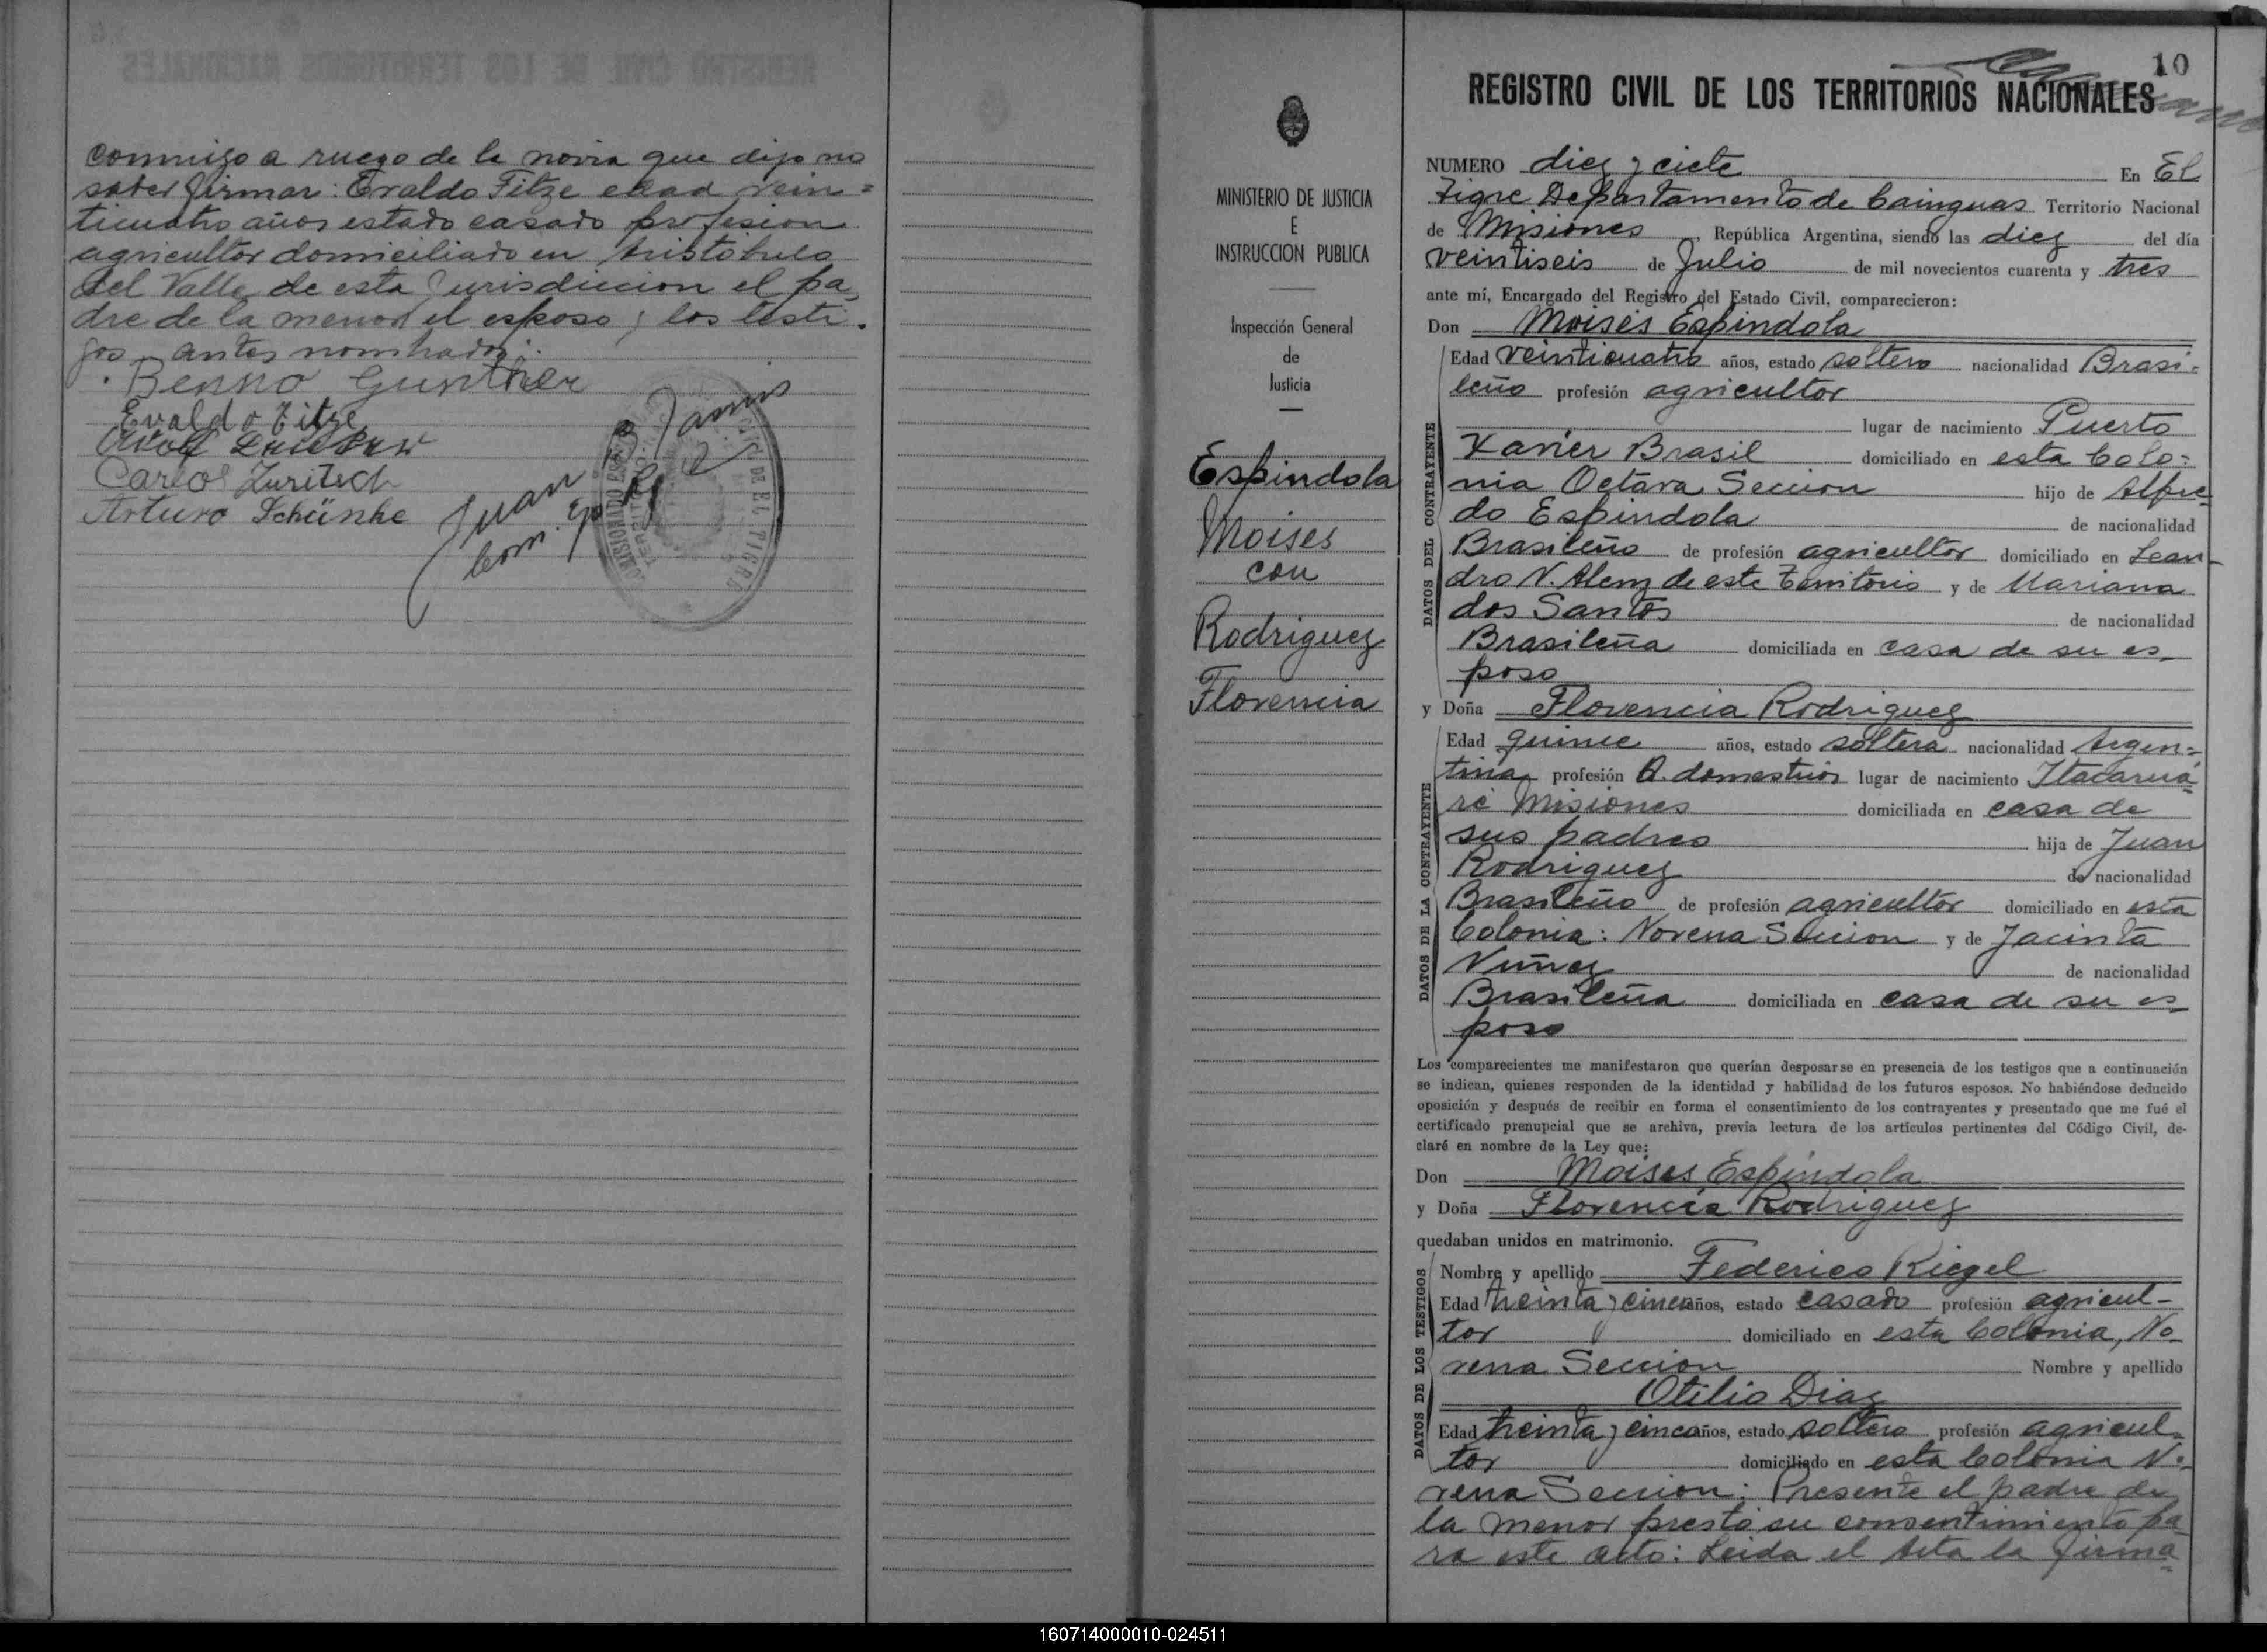 conmigo a ruego de la novia que dijo no
saber firmar: Evaldo Fitze edad vein=
ticuatro años estado casado profesion
agricultor domiciliado en Aristobulo
del Valle de esta Jurisdiccion el pa
dre de la menor el esposo y los testi.
gos antes nombrados:.
Benno Gunther
Evaldo Fitze
Adolf
Carlos Zuritsch
Arturo Schünke
Juan
10
REGISTRO CIVIL DE LOS TERRITORIOS NACIONALES
MINISTERIO DE JUSTICIA
E
INSTRUCCION PUBLICA
Inspección General
de
Justicia
Espindola
Moises
con
Rodriguez
Florencia
NUMERO diez y ciete En El
Tigre Departamento de Cainguas Territorio Nacional
de Misiones, República Argentina, siendo las diez del día
veintiseis de Julio de mil novecientos cuarenta y tres
ante mí, Encargado del Registro del Estado Civil, comparecieron:
Don Moisés Espindola
DATOS DEL CONTRAYENTE
Edad veinticuatro años, estado soltero nacionalidad Brasi-
leño profesión agricultor
lugar de nacimiento Puerto
Xavier Brasil domiciliado en esta Colo=
nia Octava Seccion hijo de Alfre
do Espindola de nacionalidad
Brasileño de profesión agricultor domiciliado en Lean-
dro N. Alem de este Territorio y de Mariana
dos Santos de nacionalidad
Brasileña domiciliada en casa de su es
poso
y Doña Florencia Rodriguez
DATOS DE LA CONTRAYENTE
Edad quince años, estado soltera nacionalidad Argen=
tina profesión Q. domesticos lugar de nacimiento Itacarua
ré Misiones domiciliada en casa de
sus padres hija de Juan
Rodriguez de nacionalidad
Brasileño de profesión agricultor domiciliado en esta
Colonia: Novena Seccion y de Jacinta
Nuñez de nacionalidad
Brasileña domiciliada en casa de su es
poso
Los comparecientes me manifestaron que querían desposarse en presencia de los testigos que a continuación
se indican, quienes responden de la identidad y habilidad de los futuros esposos. No habiéndose deducido
oposición y después de recibir en forma el consentimiento de los contrayentes y presentado que me fué el
certificado prenupcial que se archiva, previa lectura de los artículos pertinentes del Código Civil, de-
claré en nombre de la Ley que:
Don Moises Espindola
y Doña Florencia Rodriguez
quedaban unidos en matrimonio.
DATOS DE LOS TESTIGOS
Nombre y apellido Federico Riegel
Edad treinta y cinco años, estado casado profesión agricul-
tor domiciliado en esta Colonia, No
vena Seccion Nombre y apellido
Otilio Diaz
Edad treinta y cinco años, estado soltero profesión agricul
tor domiciliado en esta Colonia No
vena Seccion: Presente el padre de
la menor prestó su consentimiento pa
ra este acto: Leida el Acta la firma
160714000010-024511